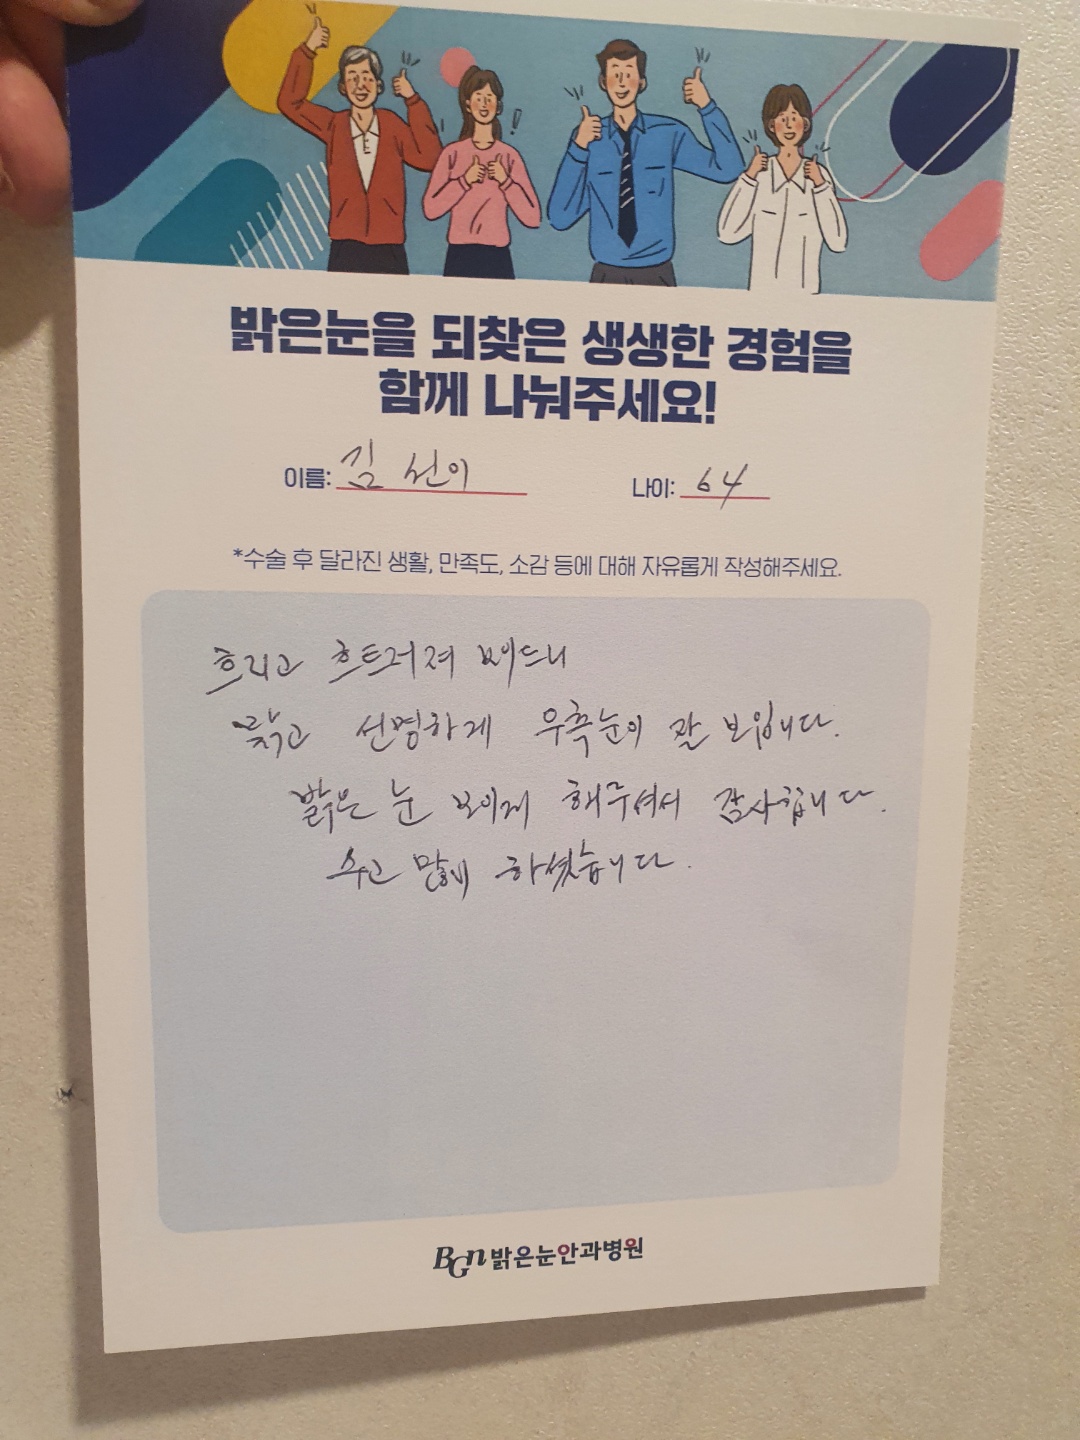 밝은눈을 되찾은 생생한 경험을
함께 나눠주세요!
이름: 김선이 나이: 64
*수술 후 달라진 생활, 만족도, 소감 등에 대해 자유롭게 작성해주세요.
흐리고 흐트러져 보이드니
맑고 선명하게 우측눈이 잘 보입니다.
밝은 눈 보이게 해주셔서 감사합니다.
수고 많이 하셨습니다.
BGn 밝은눈안과병원